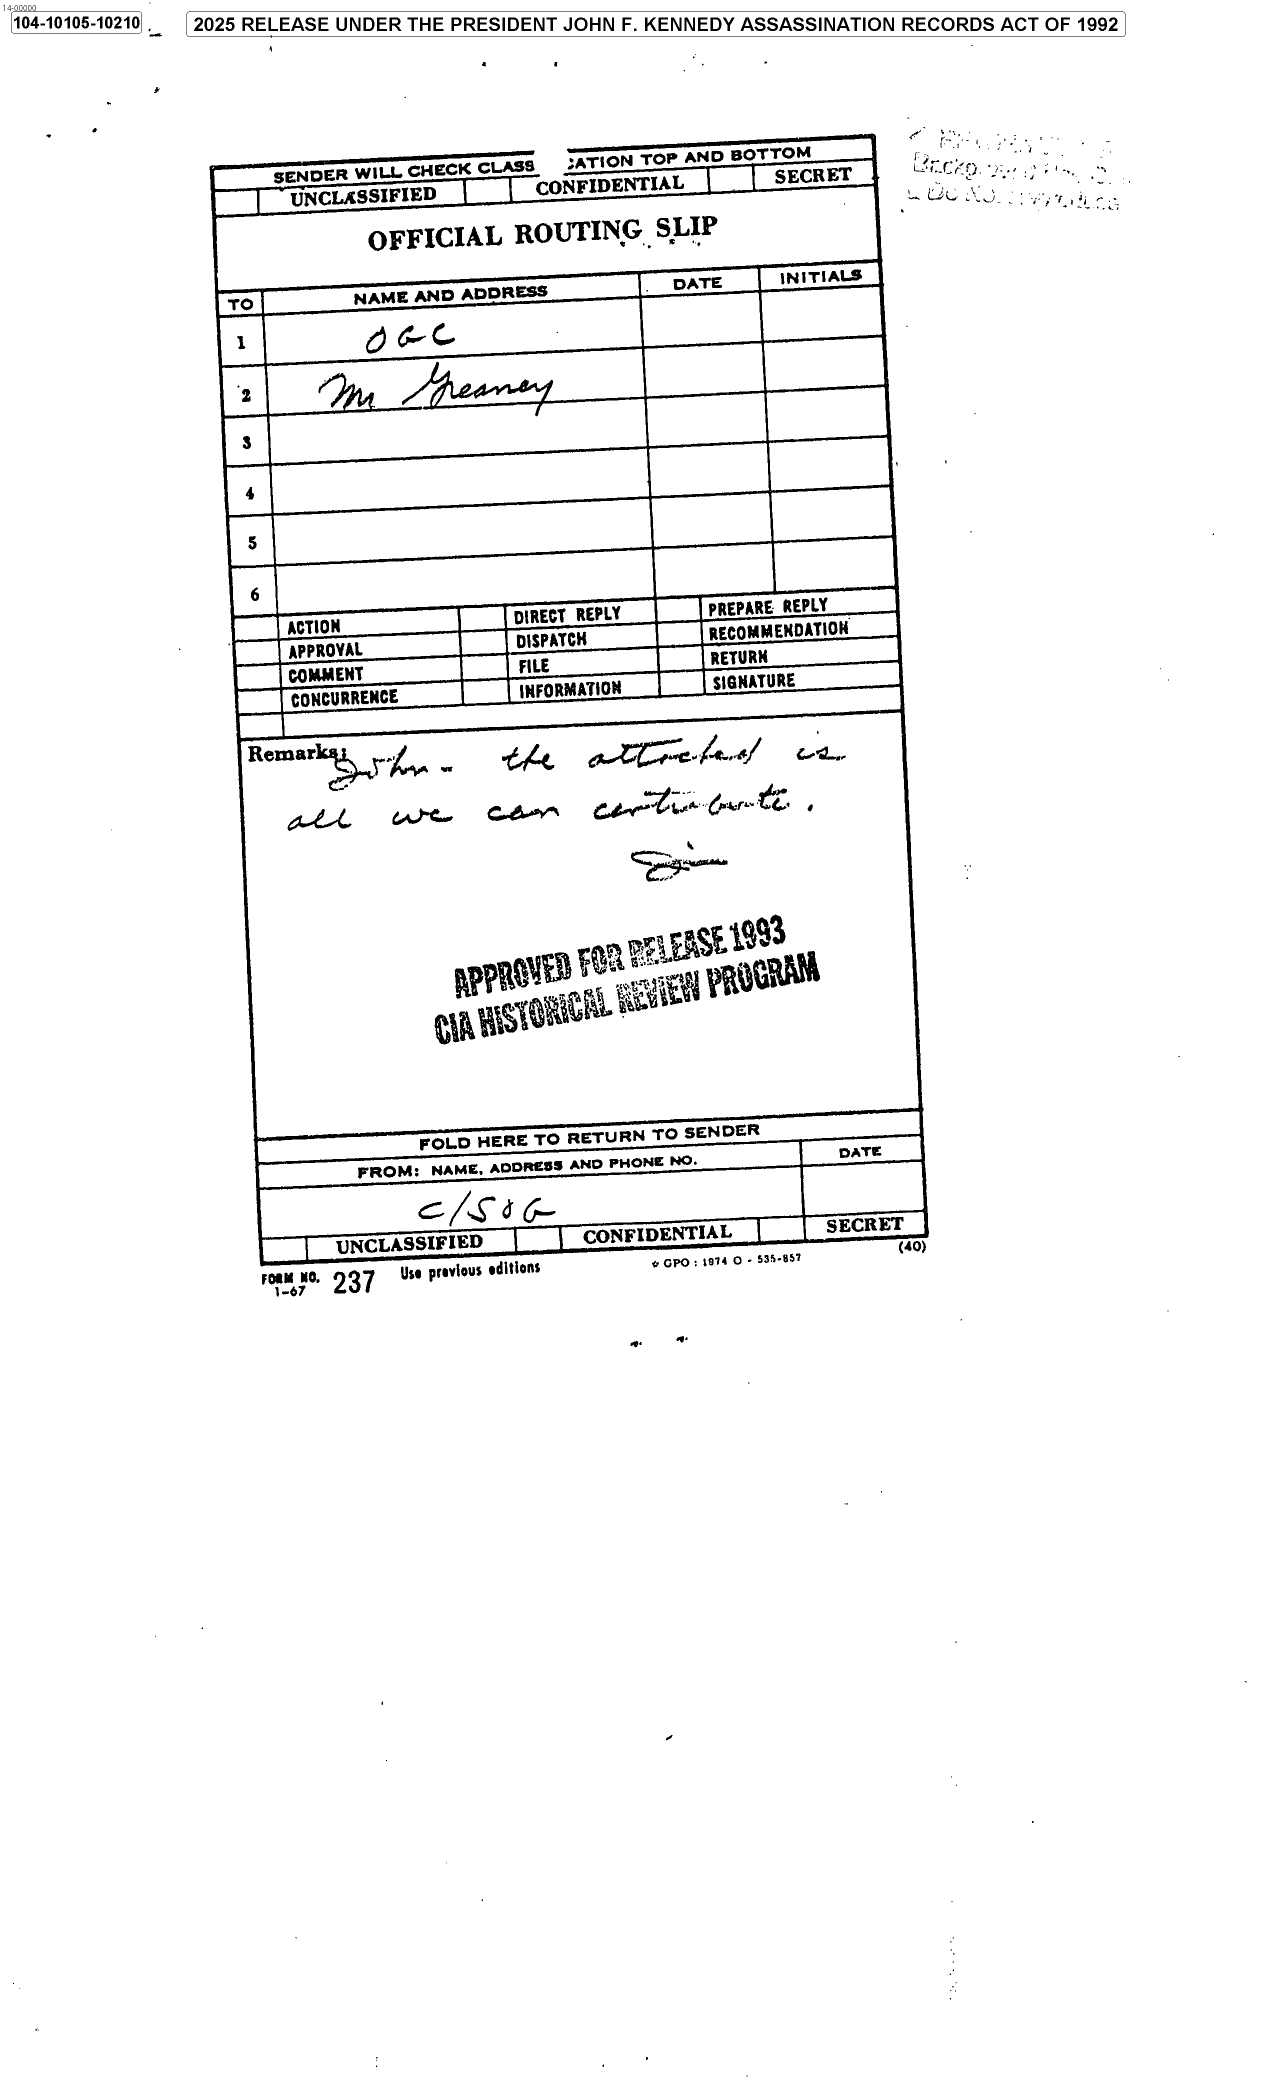 14-00000
104-10105-10210
2025 RELEASE UNDER THE PRESIDENT JOHN F. KENNEDY ASSASSINATION RECORDS ACT OF 1992
Do
SENDER WILL CHECK CLASS CATION TOP AND BOTTOM
UNCLASSIFIED CONFIDENTIAL SECRET
OFFICIAL ROUTING SLIP
TO NAME AND ADDRESS DATE INITIALS
1 OGC
2 Mr Greaney
3
4
5
6
ACTION DIRECT REPLY PREPARE REPLY
APPROVAL DISPATCH RECOMMENDATION
COMMENT FILE RETURN
CONCURRENCE INFORMATION SIGNATURE
Remarks: John - the attached is
all we can contribute.
Jim
APPROVED FOR RELEASE 1993
CIA HISTORICAL REVIEW PROGRAM
FOLD HERE TO RETURN TO SENDER
FROM: NAME, ADDRESS AND PHONE NO. DATE
C/SOG
UNCLASSIFIED CONFIDENTIAL SECRET
FORM NO. 237 Use previous editions ☆ GPO : 1974 O - 535-857 (40)
1-67